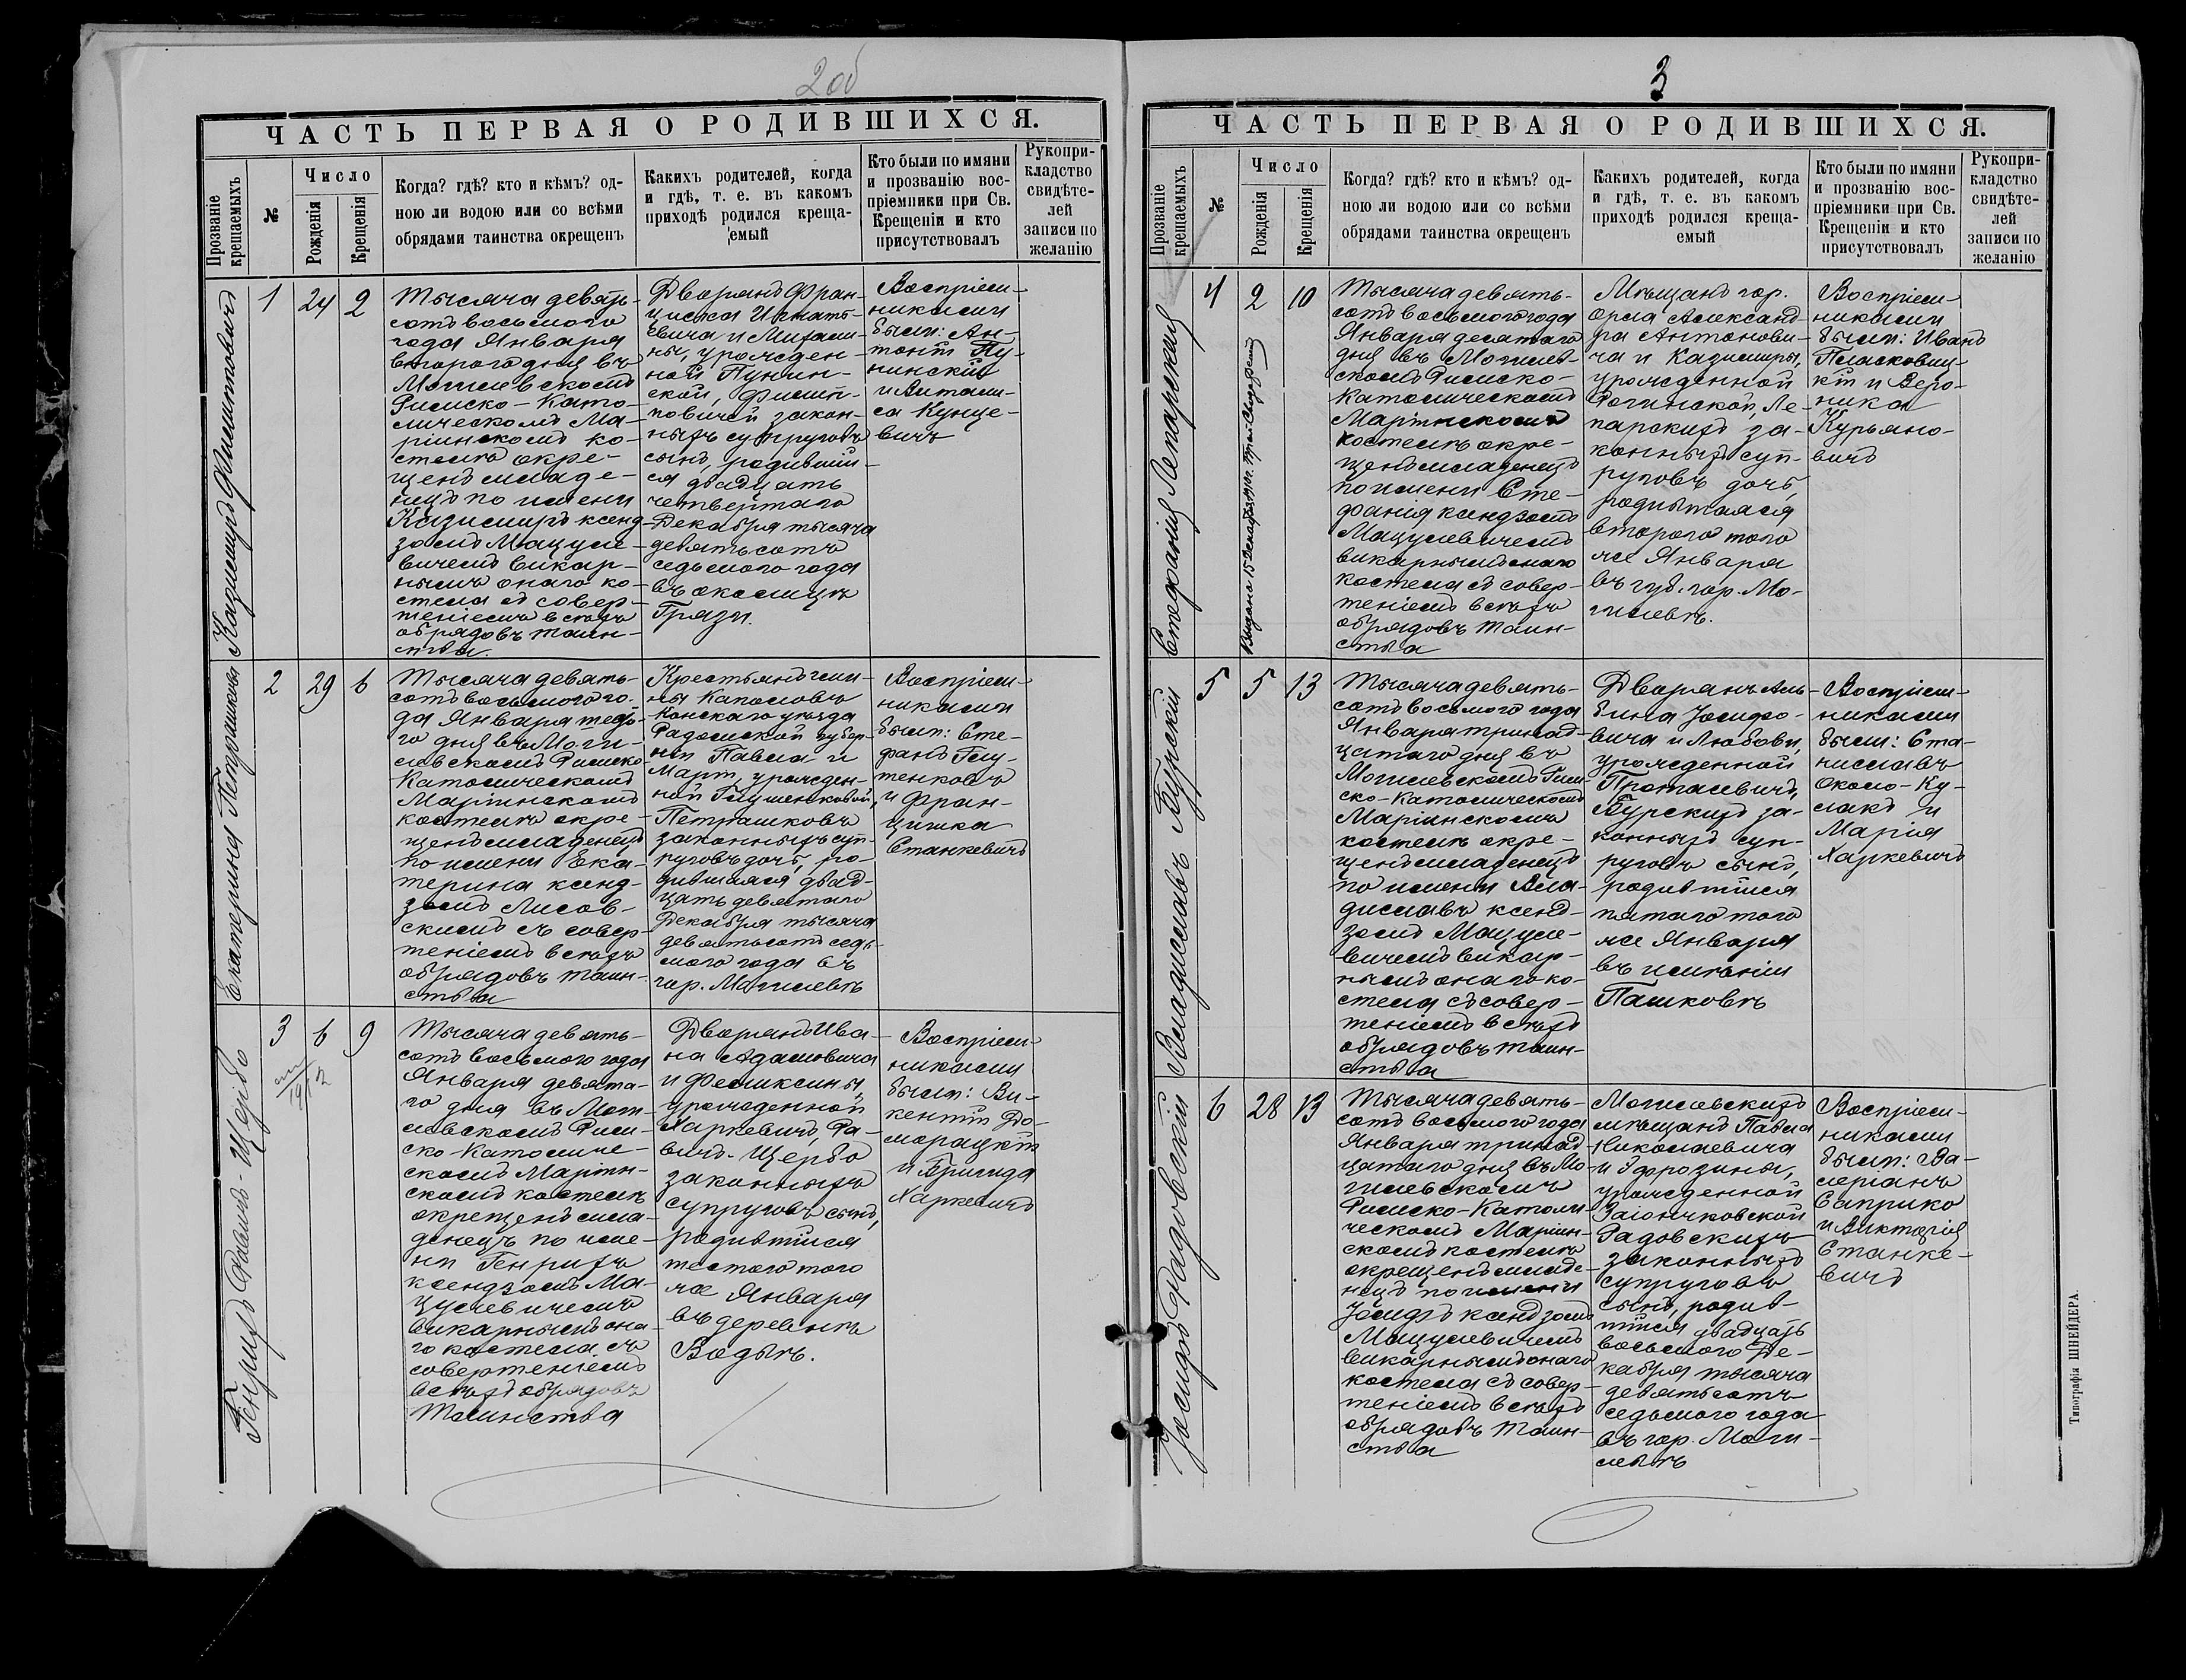 2об
ЧАСТЬ ПЕРВАЯ О РОДИВШИХСЯ.
Прозваніе крещаемыхъ
№
Число
Рожденія
Крещенія
Когда? гдѣ? кто и кѣмъ? од-
ною ли водою или со всѣми
обрядами таинства окрещенъ
Какихъ родителей, когда
и гдѣ, т. е. въ какомъ
приходѣ родился креща-
емый
Кто были по имяни
и прозванію вос-
пріемники при Св.
Крещеніи и кто
присутствовалъ
Рукопри-
кладство
свидѣте-
лей
записи по
желанію
Казимиръ Филиповичъ
1
24
2
Тысяча девять-
сотъ восьмого
года Января
второго дня въ
Могилевскомъ
Римско-Като-
лическомъ Ма-
ріинскомъ ко-
стелѣ окре-
щенъ младе-
нецъ по имени
Казимиръ ксенд-
зомъ Мацуле-
вичемъ викар-
нымъ онаго ко-
стела съ совер-
шеніемъ всѣхъ
обрядовъ таин-
ства.
Дворянъ Фран-
циска Игнать-
евича и
урожден-
ной Пунин-
ской, Филип-
повичей закон-
ныхъ супруговъ
сынъ, родившій-
ся двадцать
четвертаго
Декабря тысяча
девятьсотъ
седьмого года
въ околицѣ
Грязи.
Воспріем-
никами
были: Ан-
тоній Пу-
нинскій
и Витали-
са Кунце-
вичъ
Екатерина Петрашкова
2
29
6
Тысяча девять-
сотъ восьмого го-
да Января шесто-
го дня въ Моги-
левскомъ Римско-
Католическомъ
Маріинскомъ
костелѣ окре-
щенъ младенецъ
по имени Ека-
терина ксенд-
зомъ Лисов-
скимъ съ совер-
шеніемъ всѣхъ
обрядовъ таин-
ства
Крестьянъ гми-
ны Капоновъ
Конскаго уѣзда
Радомской губер-
ніи Павла и
Март, урожден-
ной Глушенковой,
Петрашковъ
законныхъ суп-
руговъ дочь, ро-
дившаяся двад-
цать девятаго
Декабря тысяча
девятьсотъ седь-
мого года въ
гор. Могилевѣ
Воспріем-
никами
были: Сте-
фанъ Глу-
шенковъ
и Фран-
цишка
Станкевичъ
Генрихъ Равинъ-Щербо
3
6
9
1912
Тысяча девять-
сотъ восьмого года
Января девята-
го дня въ Моги-
левскомъ Рим-
ско-Католиче-
скомъ Маріин-
скомъ костелѣ
окрещенъ мла-
денецъ по име-
ни Генрихъ
ксендзомъ Ма-
цулевичемъ
викарнымъ она-
го костела съ
совершеніемъ
всѣхъ обрядовъ
Таинства
Дворянъ Ива-
на Адамовича
и Феликсины,
урожденной
Харкевичъ, Ра-
винъ-Щербо
законныхъ
супруговъ сынъ,
родившійся
шестого того
же Января
въ деревнѣ
Водвѣ.
Воспріем-
никами
были: Ви-
кентій До-
морацкій
и Бригида
Харкевичъ
3
ЧАСТЬ ПЕРВАЯ О РОДИВШИХСЯ.
Прозваніе крещаемыхъ
№
Число
Рожденія
Крещенія
Когда? гдѣ? кто и кѣмъ? од-
ною ли водою или со всѣми
обрядами таинства окрещенъ
Какихъ родителей, когда
и гдѣ, т. е. въ какомъ
приходѣ родился креща-
емый
Кто были по имяни
и прозванію вос-
пріемники при Св.
Крещеніи и кто
присутствовалъ
Рукопри-
кладство
свидѣте-
лей
записи по
желанію
Стефанія Лепарская
4
2
10
Выдано 15 Декабря
Тысяча девять-
сотъ восьмого года
Января десятаго
дня въ Могилев-
скомъ Римско-
Католическомъ
Маріинскомъ
костелѣ окре-
щенъ младенецъ
по имени Сте-
фанія ксендзомъ
Мацулевичемъ
викарнымъ онаго
костела съ совер-
шеніемъ всѣхъ
обрядовъ таин-
ства
Мѣщанъ гор.
Орла Александ-
ра Антонови-
ча и Казимиры,
урожденной
Рогинской, Ле-
парскихъ за-
конныхъ суп-
руговъ дочь,
родившаяся
второго того
же Января
въ губ. гор. Мо-
гилевѣ.
Воспріем-
никами
были: Иванъ
Пласковиц-
кій и Веро-
ника
Курьяно-
вичъ
Владиславъ Бурскій
5
5
13
Тысяча девять-
сотъ восьмого года
Января тринад-
цатаго дня въ
Могилевскомъ Рим-
ско-Католическомъ
Маріинскомъ
костелѣ окре-
щенъ младенецъ
по имени Вла-
диславъ ксенд-
зомъ Мацуле-
вичемъ викар-
нымъ онаго ко-
стела съ совер-
шеніемъ всѣхъ
обрядовъ таин-
ства
Дворянъ Аль-
бина Іосифо-
вича и Любови,
урожденной
Протасевичъ,
Бурскихъ за-
конныхъ суп-
руговъ сынъ,
родившійся
пятаго того
же Января
въ имѣніи
Пашковѣ
Воспріем-
никами
были: Ста-
ниславъ
Около-Ку-
лакъ и
Марія
Харкевичъ
Іосифъ Радовскій
6
28
13
Тысяча девять-
сотъ восьмого года
Января тринад-
цатаго дня въ Мо-
гилевскомъ
Римско-Католи-
ческомъ Маріин-
скомъ костелѣ
окрещенъ младе-
нецъ по имени
Іосифъ ксендзомъ
Мацулевичемъ
викарнымъ онаго
костела съ совер-
шеніемъ всѣхъ
обрядовъ таин-
ства
Могилевскихъ
мѣщанъ Павла
Николаевича
и Эфрозины,
урожденной
Заіончковской
Радовскихъ
законныхъ
супруговъ
сынъ, родив-
шійся двадцать
восьмого Де-
кабря тысяча
девятьсотъ
седьмого года
въ гор. Моги-
левѣ
Воспріем-
никами
были: Ва-
леріанъ
Саприко
и Викторія
Станке-
вичъ
Типографія ШНЕЙДЕРА.